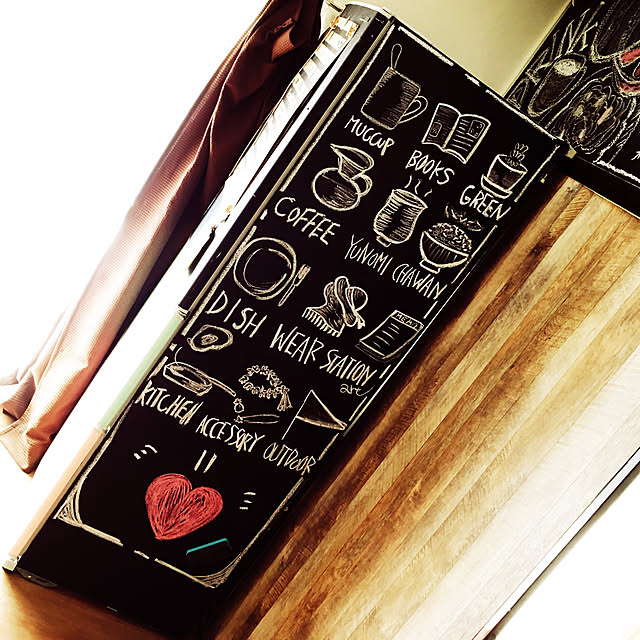 MUCCUP BOOKS GREEN
COFFEE YUNOMI CHAWAN
MENU
DISH WEAR STATION
are
KITCHEN ACCESSORY OUTDOOR